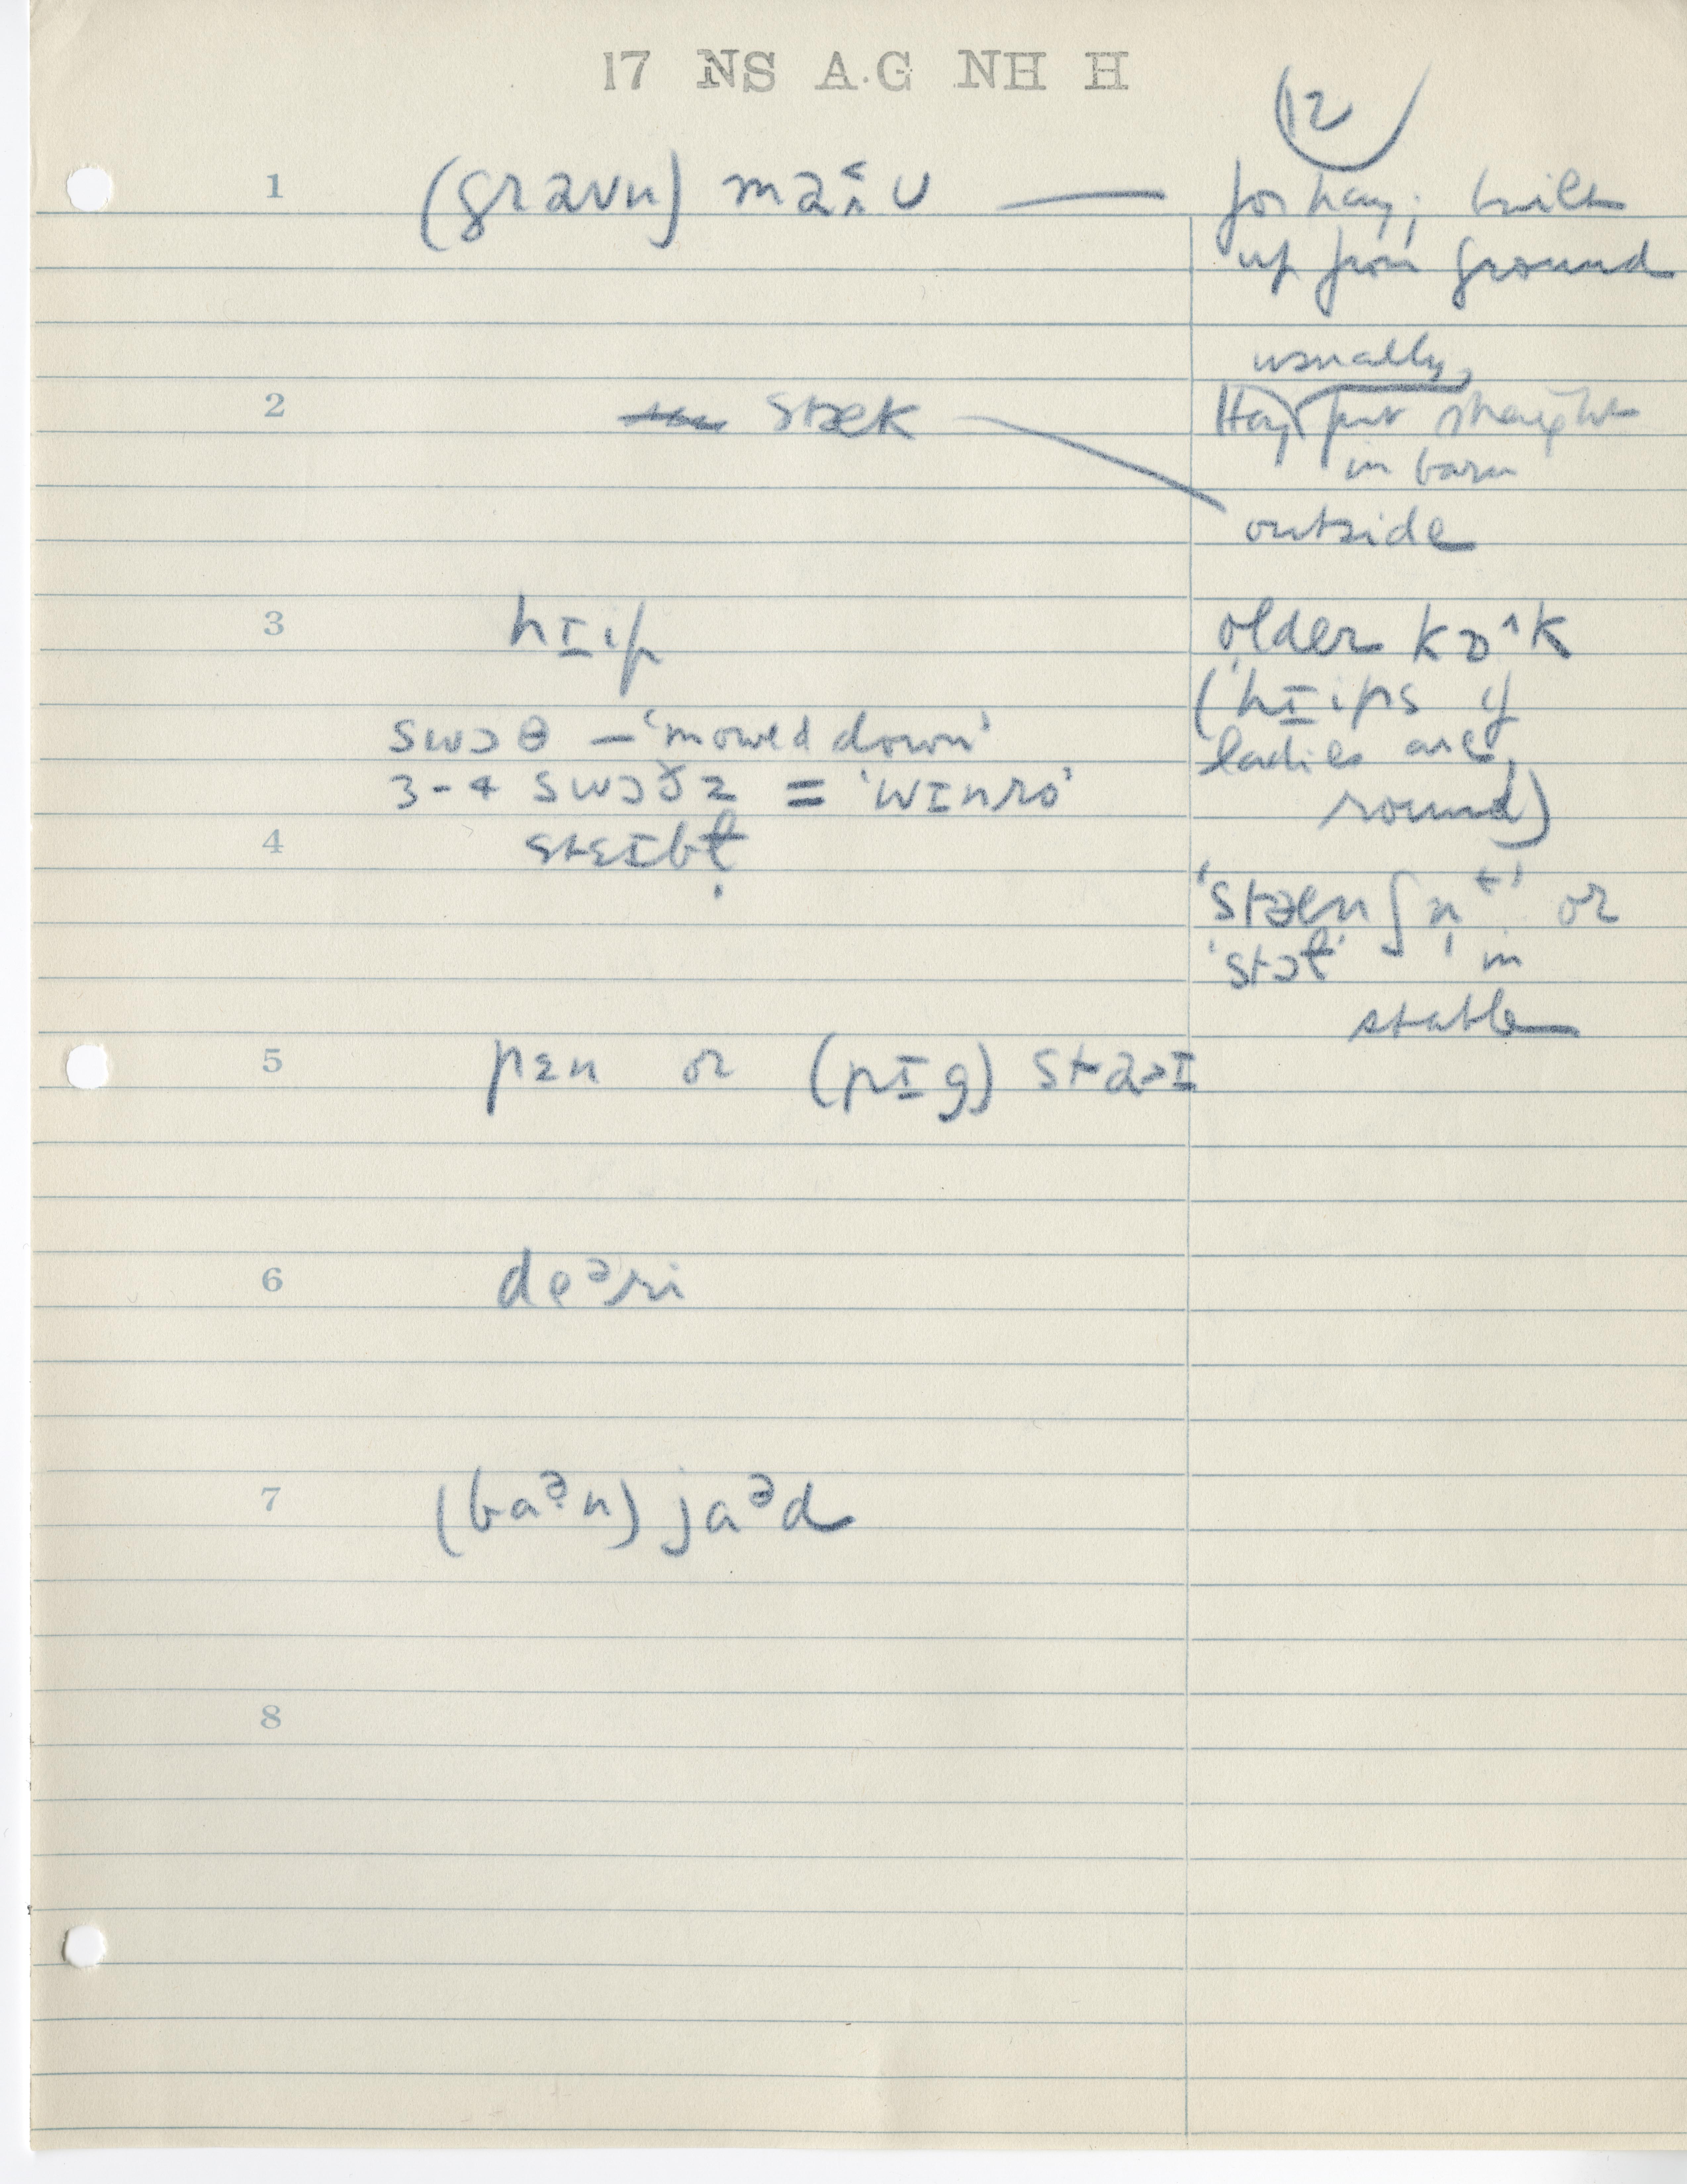 17 NS A.G NH H
12
1 (graʊn) maʊ — for hay; built
up from ground
usually,
2 stæk Hay put straight
in barn
outside
3 hɪip older kɒ^k
(hɪips if
ladies are
round)
swɔθ – 'mowed down'
3-4 swɔðz = 'wɪnro'
4 stɛɪbɫ̩
'stænʃn̩t' or
'stɔɫ' in
stable
5 pɛn or (pɪg) staɪ
6 deᵊri
7 (baᵊn) jaᵊd
8